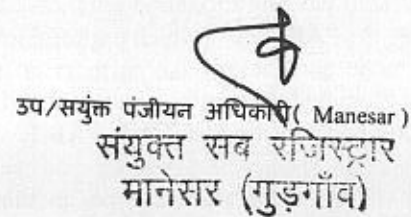 उप/सयुंक्त पंजीयन अधिकारी( Manesar )
संयुक्त सब रजिस्ट्रार
मानेसर (गुड़गाँव)